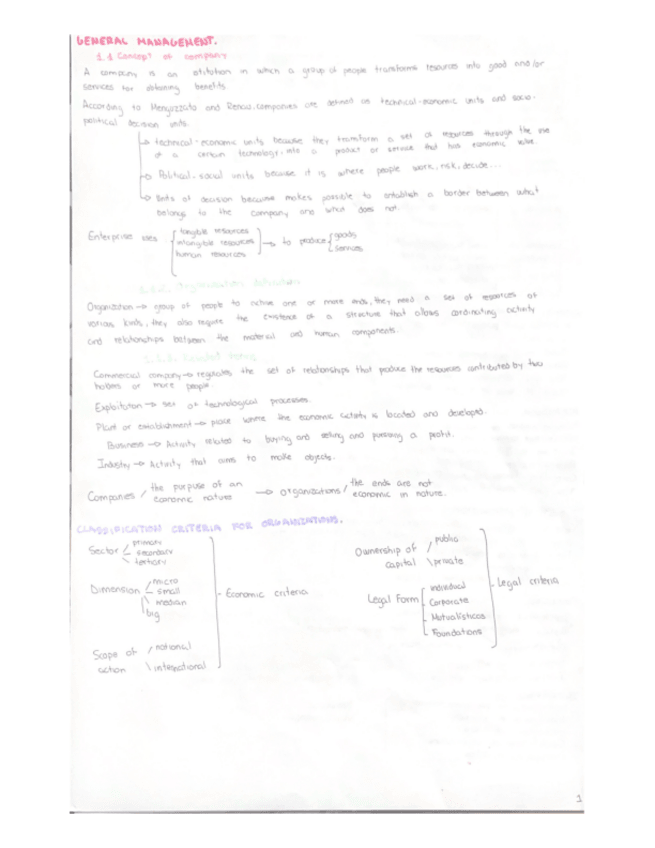 GENERAL MANAGEMENT.
1.1 Concept of company
A company is an in which a group of people transforms resources into good and/or
services for obtaining benefits.
According to Menguzzato and Renau, companies are defined as technical-economic units and socio-
political decision units.
technical-economic units because they transform a set of resources through the use
of a certain technology, into a product or service that has economic value.
Political-social units because it is where people work, risk, decide...
Units of decision because makes possible to establish a border between what
belongs to the company and what does not.
Enterprise uses
tangible resources
intangible resources
human resources
to produce
goods
services
definition
Organization → group of people to achive one or more ends, they need a set of resources of
various kinds, they also require the existence of a structure that allows coordinating activity
and relationships between the material and human components.
Commercial company → regulates the set of relationships that produce the resources contributed by two
or more people.
Exploitation → set of technological processes.
Plant or establishment → place where the economic activity is located and developed.
Business → Activity related to buying and selling and pursuing a profit.
Industry → Activity that aims to make objects.
Companies / the purpose of an economic nature → organizations / the ends are not economic in nature.
CLASSIFICATION CRITERIA FOR ORGANIZATIONS.
Sector
primary
secondary
tertiary
Dimension
micro
small
median
big
Scope of action
national
international
Economic criteria
Ownership of capital
public
private
Legal Form
individual
Corporate
Mutualísticas
Foundations
Legal criteria
1